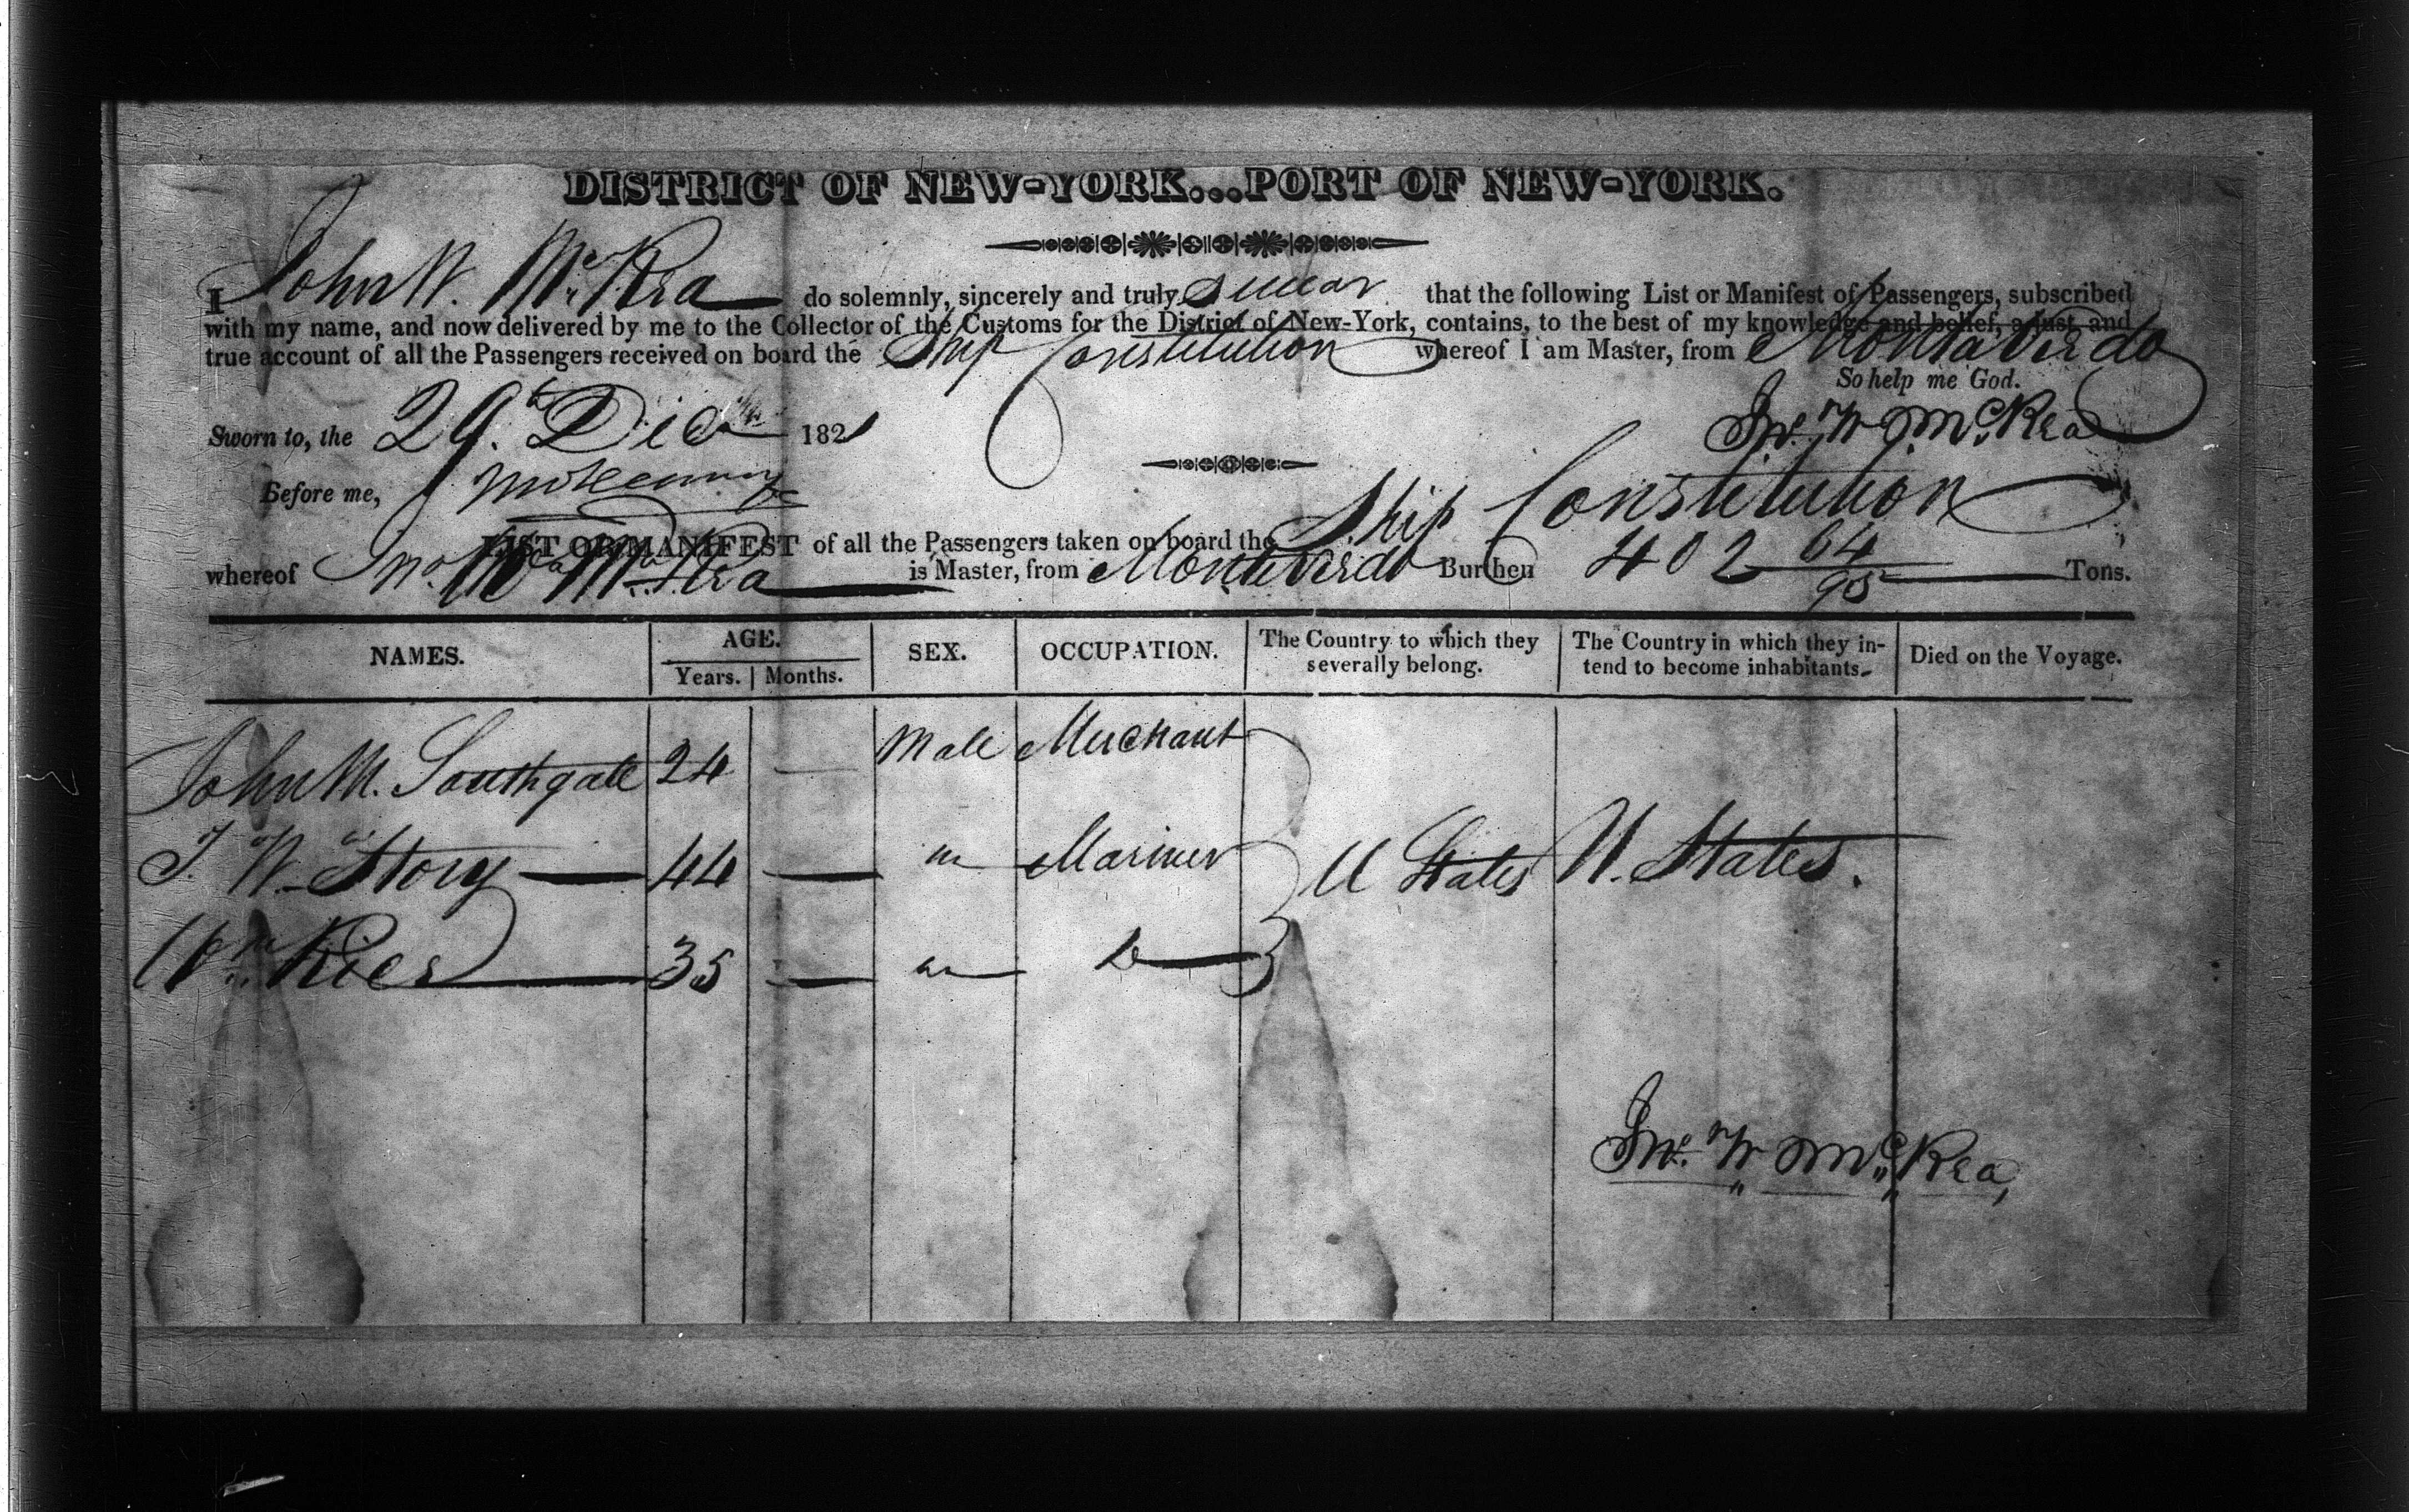 DISTRICT OF NEW-YORK...PORT OF NEW-YORK.
I John W. McKea do solemnly, sincerely and truly swear that the following List or Manifest of Passengers, subscribed
with my name, and now delivered by me to the Collector of the Customs for the District of New-York, contains, to the best of my knowledge and belief, a just and
true account of all the Passengers received on board the Ship Constitution whereof I am Master, from Monta Verdo
So help me God.
Sworn to, the 29th Dec 1821 Jno. W McRea
Before me,
LIST OR MANIFEST of all the Passengers taken on board the Ship Constitution
whereof Jno. W McRea is Master, from Monteverdo Burthen 402 64/95 Tons.
NAMES. AGE. Years. Months. SEX. OCCUPATION. The Country to which they severally belong. The Country in which they intend to become inhabitants. Died on the Voyage.
John M. Southgate 24 — Male Merchant
T. W. Story 44 — m Mariner U States U. States.
Wm Rice 35 — m Do
Jno. W McRea